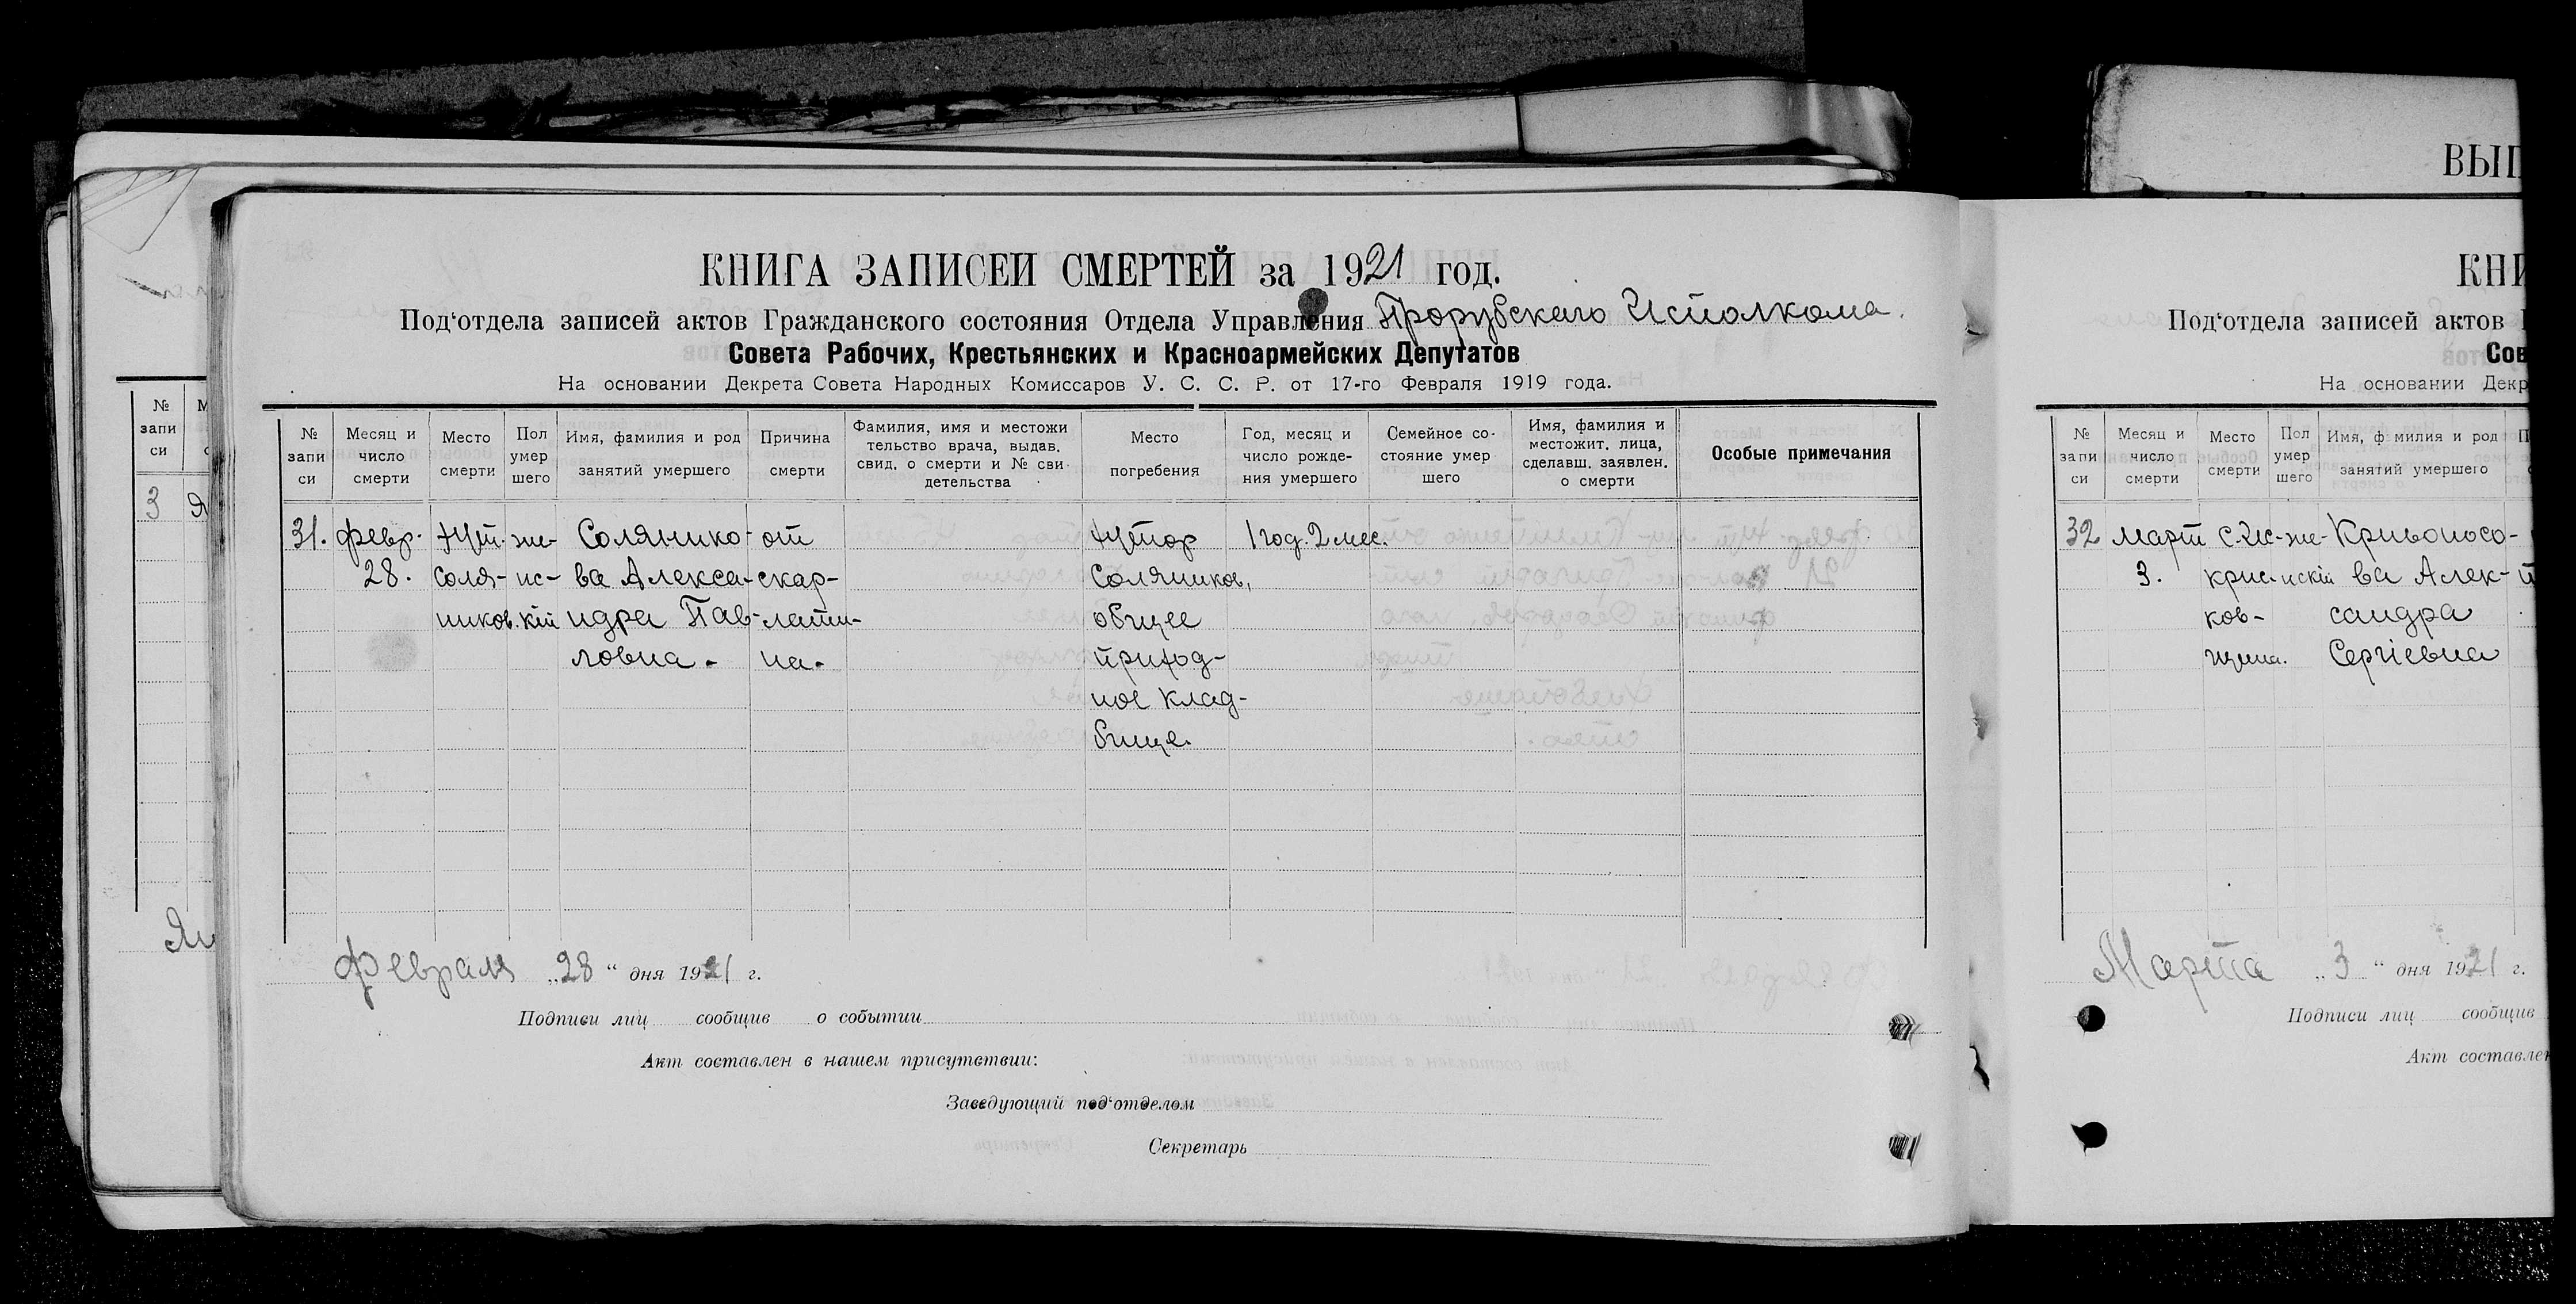 КНИГА ЗАПИСЕЙ СМЕРТЕЙ за 1921 год.
Под‘отдела записей актов Гражданского состояния Отдела Управления Прорубскаго Исполкома.
Совета Рабочих, Крестьянских и Красноармейских Депутатов
На основании Декрета Совета Народных Комиссаров У. С. С. Р. от 17-го Февраля 1919 года.
№ запи си
Месяц и число смерти
Место смерти
Пол умер шего
Имя, фамилия и род занятий умершего
Причина смерти
Фамилия, имя и местожи тельство врача, выдав. свид. о смерти и № сви- детельства
Место погребения
Год, месяц и число рожде- ния умершего
Семейное со- стояние умер шего
Имя, фамилия и местожит. лица, сделавш. заявлен. о смерти
Особые примечания
31. февр. хут. же- Солянико- от хутор 1 год. 2 мес.
28. Соля- нс- ва Алекса- скар- Соляников,
ников. кій ндра Пав- лати- общее
ловна. на. приход-
ное клад-
бище.
Февраля „28“ дня 1921 г.
Подписи лиц сообщив о событии
Акт составлен в нашем присутствии:
Заведующий под‘отделом
Секретарь
№ запи си
3
ВЫП
КНИ
Под‘отдела записей актов
Сов
На основании Декр
№ запи си
Месяц и число смерти
Место смерти
Пол умер шего
Имя, ф милия и род занятий умершего
32 март же- Кривоносо-
3. нскій ва Алек-
ков- сандра
щина. Сергіевна
Марта „3“ дня 1921 г.
Подписи лиц сообщив
Акт составлен